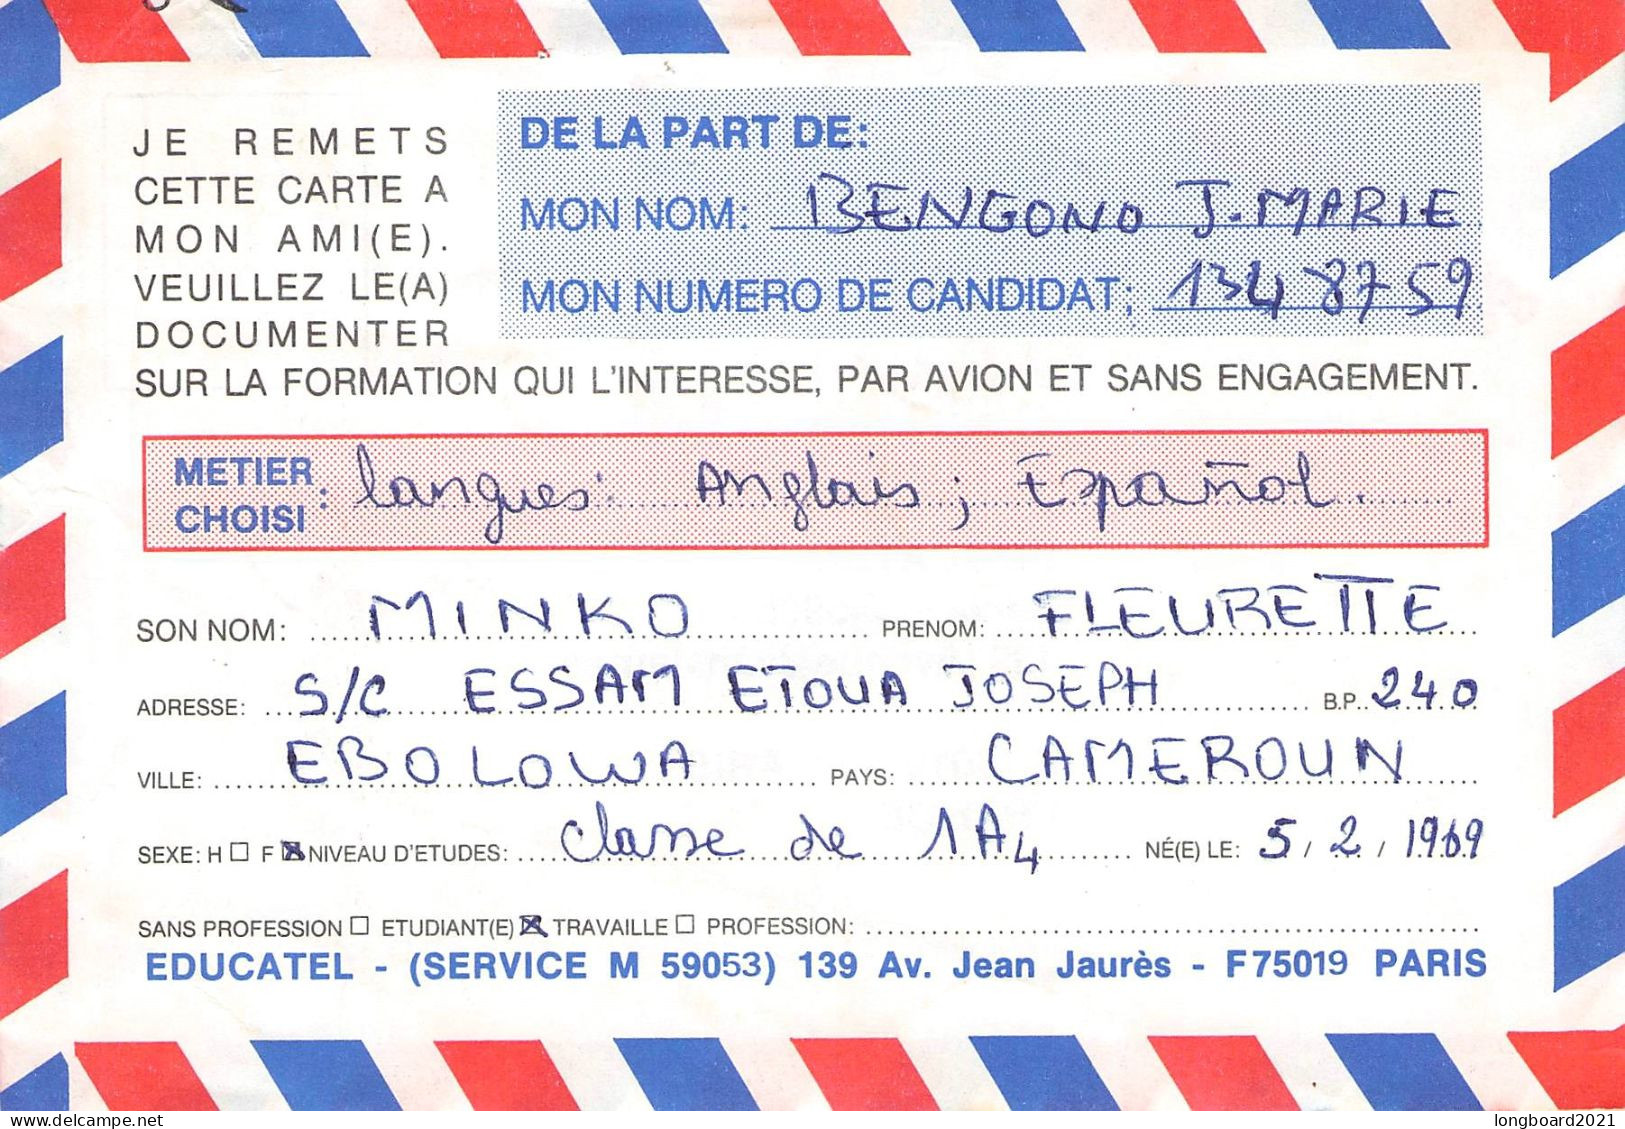 JE REMETS
CETTE CARTE A
MON AMI(E).
VEUILLEZ LE(A)
DOCUMENTER
SUR LA FORMATION QUI L'INTERESSE, PAR AVION ET SANS ENGAGEMENT.
DE LA PART DE:
MON NOM: BENGONO J. MARIE
MON NUMERO DE CANDIDAT; 134 87 59
METIER CHOISI : langues: Anglais; Español.
SON NOM: MINKO PRENOM: FLEURETTE
ADRESSE: S/C ESSAM ETOUA JOSEPH B.P. 240
VILLE: EBOLOWA PAYS: CAMEROUN
SEXE: H F NIVEAU D'ETUDES: Classe de 1A4 NÉ(E) LE: 5 / 2 / 1969
SANS PROFESSION ETUDIANT(E) TRAVAILLE PROFESSION:
EDUCATEL - (SERVICE M 59053) 139 Av. Jean Jaurès - F75019 PARIS
delcampe.net
longboard2021